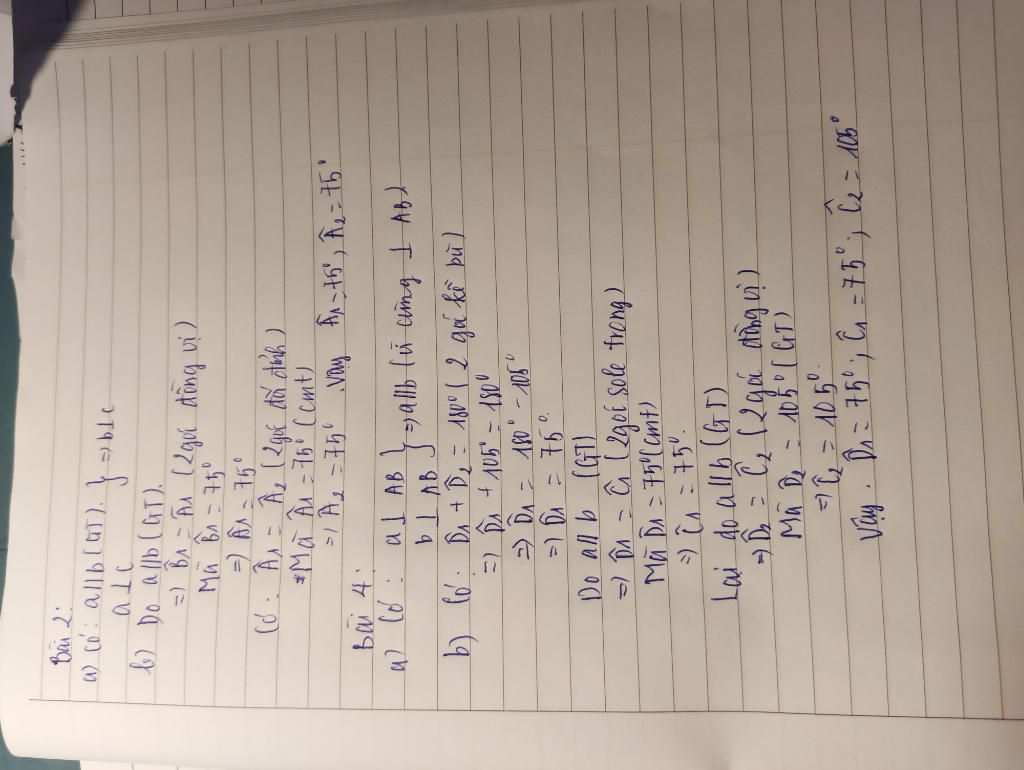 Bài 2:
a) Có: a//b (GT). } => b⊥c
a⊥c
b) Do a//b (GT).
=> B̂1 = Â1 (2 goá đồng vị)
Mà B̂1 = 75°
=> Â1 = 75°
Có: Â1 = Â2 (2goá đối đỉnh)
*Mà Â1 = 75° (cmt)
=> Â2 = 75° Vậy Â1 = 75°, Â2 = 75°
Bài 4:
a) Có: a ⊥ AB } => a//b (Vì cùng ⊥ AB)
b ⊥ AB
b) Có: D̂1 + D̂2 = 180° (2 goá kề bù)
=> D̂1 + 105° = 180°
=> D̂1 = 180° - 105°
=> D̂1 = 75°.
Do a//b (GT)
=> D̂1 = Ĉ1 (2goí sole trong)
Mà D̂1 = 75° (cmt)
=> Ĉ1 = 75°.
Lại do a//b (GT)
=> D̂2 = Ĉ2 (2goá đồng vị)
Mà D̂2 = 105° (GT)
=> Ĉ2 = 105°.
Vậy. D̂1 = 75°; Ĉ1 = 75°; Ĉ2 = 105°